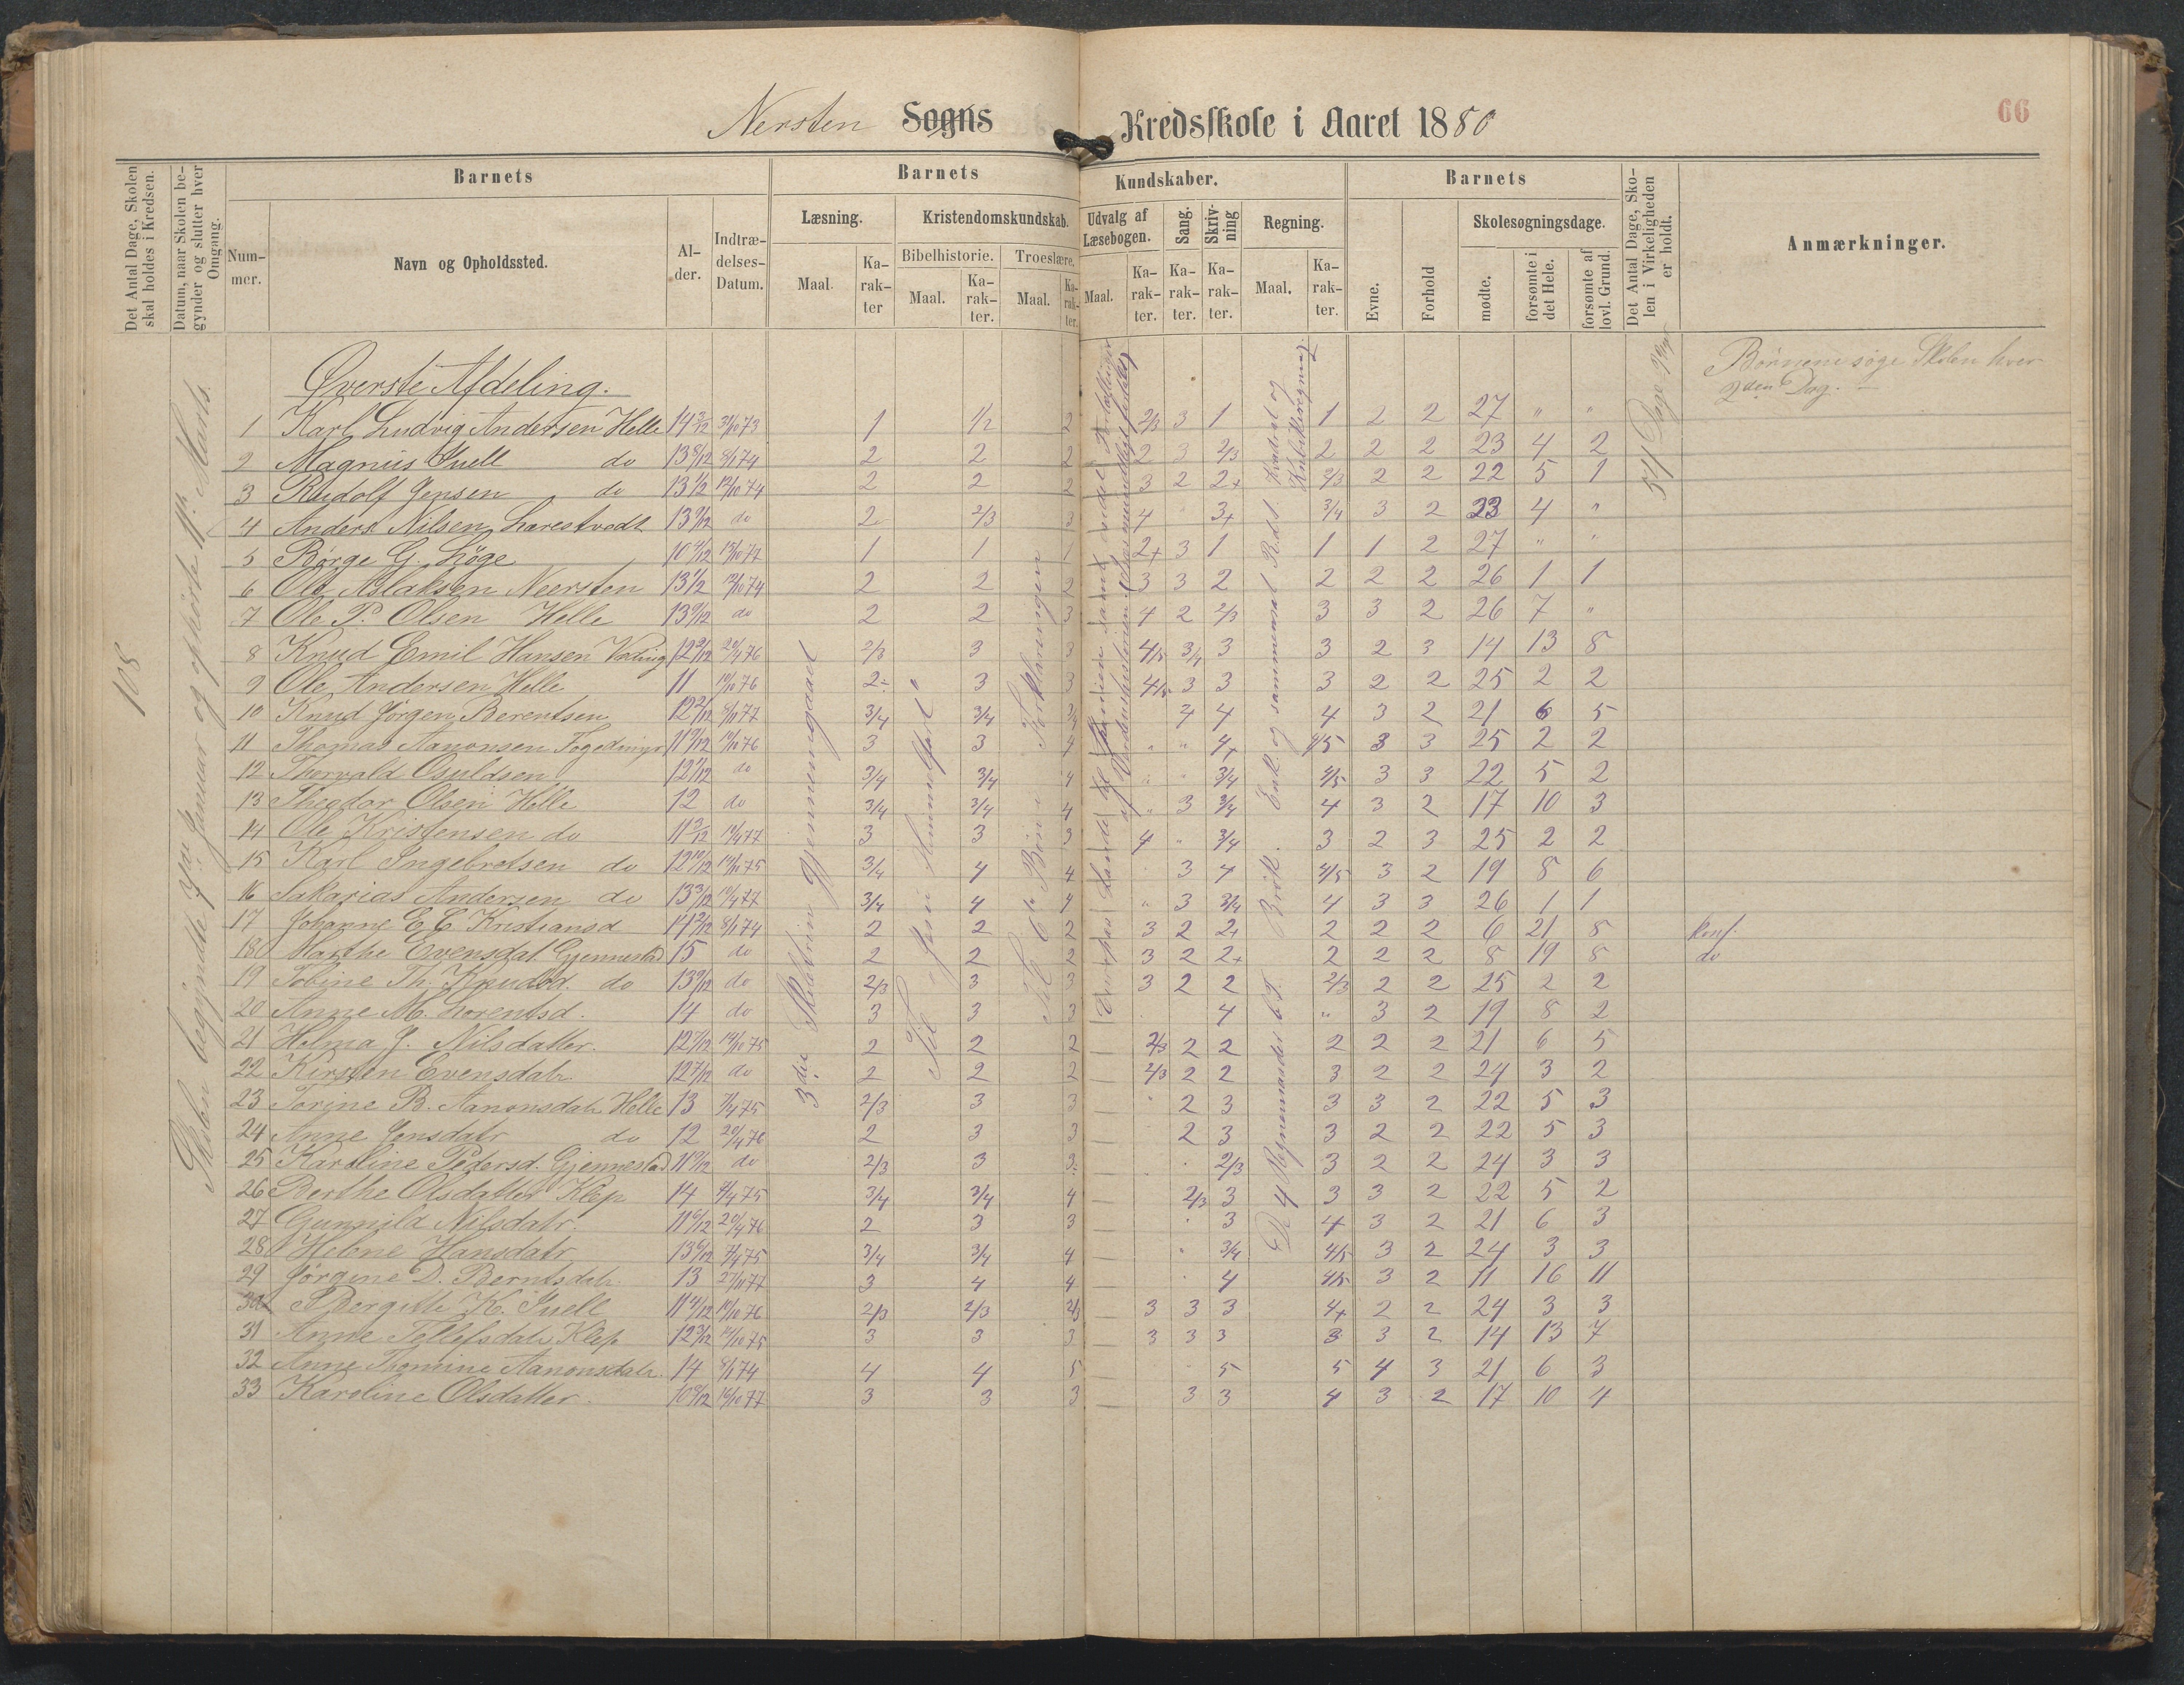 Nersten Sogns Kredsskole i Aaret 1880
66
Det Antal Dage, Skolen skal holdes i Kredsen.
Datum, naar Skolen begynder og slutter hver Omgang.
Nummer.
Barnets
Navn og Opholdssted.
Alder.
Indtrædelses-Datum.
Barnets Kundskaber.
Læsning.
Maal.
Karakter
Kristendomskundskab.
Bibelhistorie.
Maal.
Karakter.
Troeslære.
Maal.
Karakter.
Udvalg af Læsebogen.
Maal.
Karakter.
Sang.
Karakter.
Skrivning
Karakter.
Regning.
Maal.
Karakter.
Barnets
Evne.
Forhold
Skolesøgningsdage.
mødte.
forsømte i det Hele.
forsømte af lovl. Grund.
Det Antal Dage, Skolen i Virkeligheden er holdt.
Anmærkninger.
108
Skolen begyndte 7de Januar og ophörte Marts.
3die Skoletrin gjennemgaaet
Til Jesu Himmelfart
Til 6te Bön i Forklaringen
De 4 Regnemaader Brök. Enk. og sammensat R.d.t. Kvadrat og Kubikregning
54 Dage
Børnene söge Skolen hver
2den Dag.
Øverste Afdeling.
1 Karl Ludvig Andersen Helle 14 3/12 31/10 73 1 1/2 2 2/3 3 1 1 2 2 27 " "
2 Magnus Juell do 13 8/12 8/1 74 2 2 2 2 3 2/3 2 2 2 23 4 2
3 Rudolf Jensen do 13 1/2 12/10 74 2 2 2 3 2 2+ 2/3 2 2 22 5 1
4 Anders Nilsen Larestvedt 13 9/12 do 2 2/3 3 4 3+ 3/4 3 2 23 4 "
5 Börge G. Löge 10 4/12 15/10 77 1 1 1 2+ 3 1 1 1 2 27 " "
6 Ole Aslaksen Neersten 13 1/2 12/10 74 2 2 2 3 3 2 2 2 2 26 1 1
7 Ole P. Olsen Helle 13 9/12 do 2 2 3 4 2 2/3 3 3 2 26 7 "
8 Knud Emil Hansen 12 9/12 20/4 76 2/3 3 3 4/5 3/4 3 3 2 3 14 13 8
9 Ole Andersen Helle 11 10/10 76 2÷ 3 3 4/5 3 3 3 2 2 25 2 2
10 Knud Jörgen Berentsen 12 2/12 8/11 77 3/4 3/4 3/4 4 4 3 2 21 6 5
11 Thomas Aanonsen 11 9/12 10/10 76 3 3 4 " " 4+ 4/5 3 3 25 2 2
12 Thorvald Osuldsen 12 7/12 do 3/4 3/4 4 " " 3/4 4/5 3 3 22 5 2
13 Theodor Olsen Helle 12 do 3/4 3/4 4 " 3 3/4 4 3 2 17 10 3
14 Ole Kristensen do 11 3/12 19/4 77 3 3 3 4 " 3/4 3 2 3 25 2 2
15 Karl Ingebretsen do 12 10/12 14/10 75 3/4 4 4 3 4 4/5 3 2 19 8 6
16 Sakarias Andersen do 13 3/12 19/4 77 3/4 4 4 " 3 3/4 4 3 3 26 1 1
17 Johanne E. C. Kristiansd 14 2/12 8/1 74 2 2 2 3 2 2+ 2 2 2 6 21 8 konf.
18 Marthe Evensdat. Gjennestad 15 do 2 2 2 3 2 2+ 2 2 2 8 19 8 do
19 Tobine Th. Knudsdr. do 13 9/12 do 2/3 3 3 3 2 2 2/3 2 2 25 2 2
20 Anne M. Lorentsd. 14 do 3 3 3 4 " 3 2 19 8 2
21 Helma J. Nilsdatter. 12 7/12 14/10 75 2 2 2 2/3 2 2 2 2 2 21 6 5
22 Kirsten Evensdatr 12 7/12 do 2 2 2 2/3 2 2 3 2 2 24 3 2
23 Torine B. Aanonsdatr. Helle 13 7/4 75 2/3 3 3 " 2 3 3 3 2 22 5 3
24 Anne Jensdatr do 12 20/4 76 2 3 3 2 3 3 2 2 22 5 3
25 Karoline Pedersd. Gjennestad 11 9/12 do 2/3 3 3÷ 2/3 3 2 2 24 3 3
26 Berthe Olsdatter Klep 14 9/4 75 3/4 3/4 4 2/3 3 3 3 2 22 5 2
27 Gunnild Nilsdatr. 11 6/12 20/4 76 2 3 3 3 4 3 2 21 6 3
28 Helene Hansdatr 13 6/12 7/4 75 3/4 3/4 4 " 3/4 4/5 3 2 24 3 3
29 Jörgine D. Berntsdatr. 13 27/11 77 3 4 4 4 4/5 3 2 11 16 11
30 Bergitte K. Juell 11 4/12 10/10 76 2/3 2/3 2/3 3 3 3 4+ 2 2 24 3 3
31 Anne Tellefsdatr Klep 12 3/12 14/10 75 3 3 3 3 3 3 3 3 2 14 13 7
32 Anne Thomine Aanonsdatr. 14 8/1 74 4 4 5 5 5 4 3 21 6 3
33 Karoline Olsdatter. 10 9/12 16/10 77 3 3 3 3 3 4 3 2 17 10 4